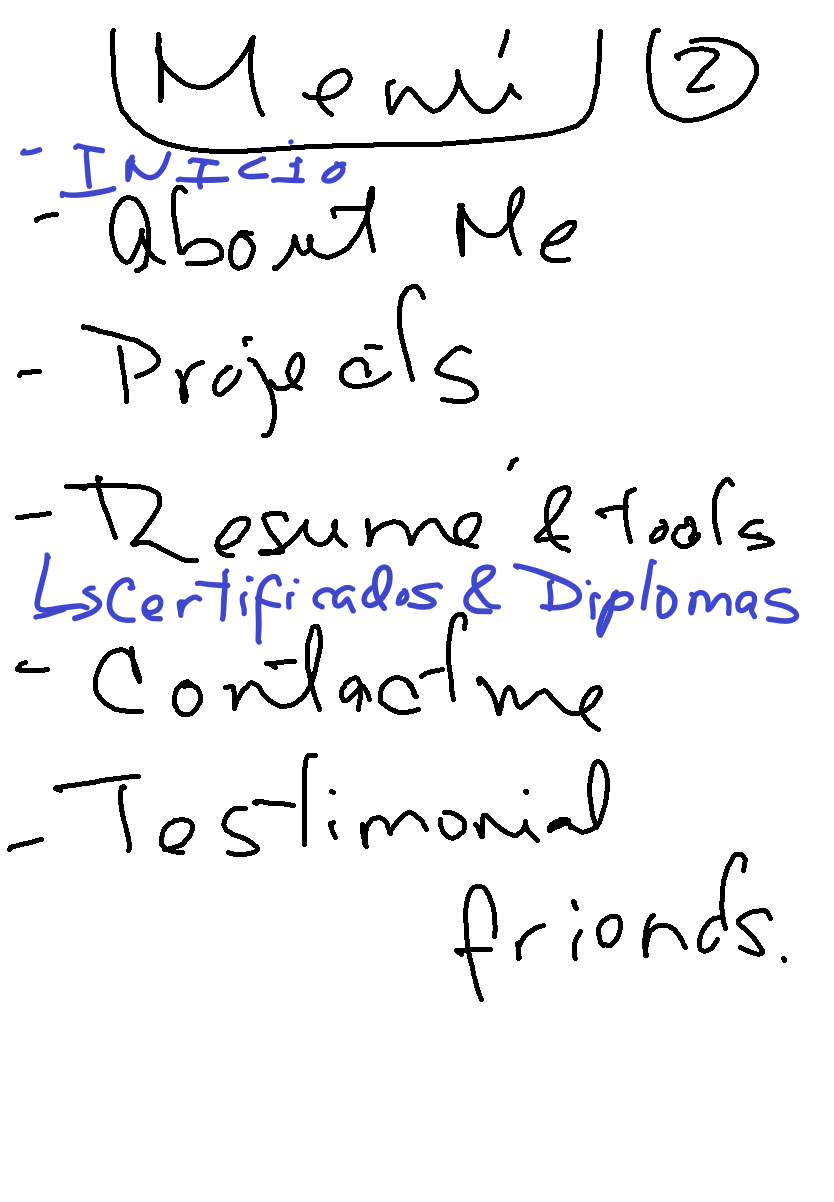 Menú 2
- INICIO
- About Me
- Projects
- Resumé & tools
↳ Certificados & Diplomas
- Contact me
- Testimonial
frionds.